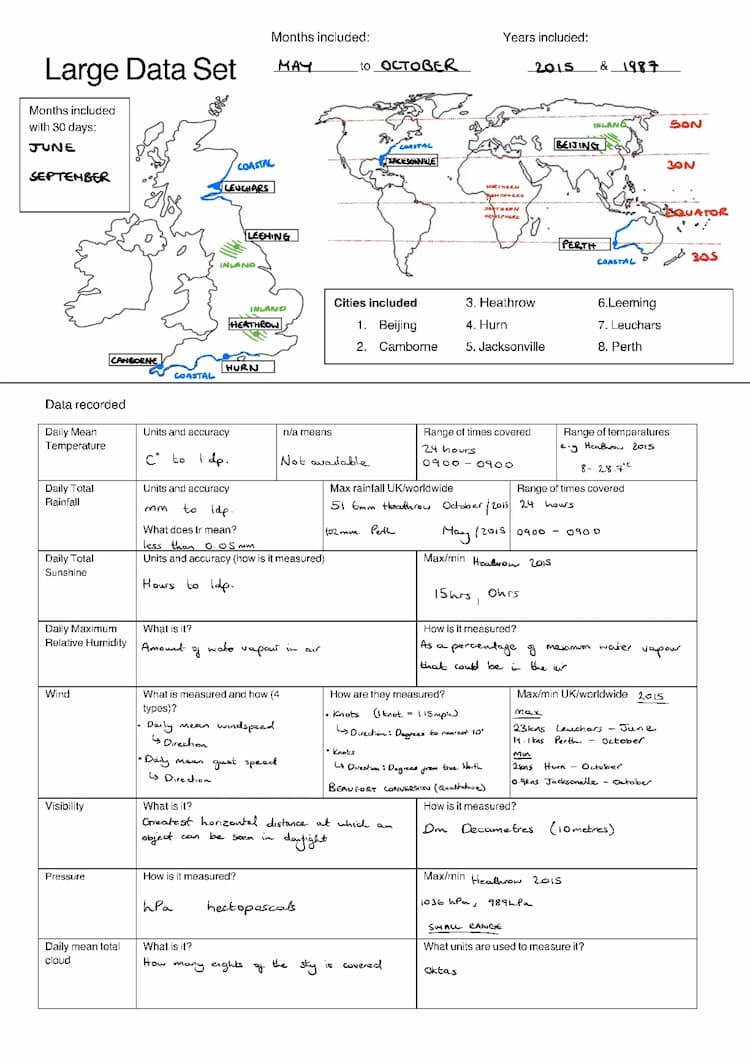 Months included:
Years included:
Large Data Set
MAY to OCTOBER
2015 & 1987
Months included
with 30 days:
JUNE
SEPTEMBER
COASTAL
LEUCHARS
LEEMING
INLAND
INLAND
HEATHROW
CAMBORNE
COASTAL
HURN
INLAND
50N
COASTAL
BEIJING
JACKSONVILLE
30N
NORTHERN
HEMISPHERE
SOUTHERN
HEMISPHERE
EQUATOR
PERTH
COASTAL
30S
Cities included
1. Beijing
2. Camborne
3. Heathrow
4. Hurn
5. Jacksonville
6.Leeming
7. Leuchars
8. Perth
Data recorded
Daily Mean
Temperature
Units and accuracy
C° to 1 dp.
n/a means
Not available
Range of times covered
24 hours
0900 - 0900
Range of temperatures
e.g Heathrow 2015
8 - 28.7°C
Daily Total
Rainfall
Units and accuracy
mm to 1dp.
What does tr mean?
less than 0.05mm
Max rainfall UK/worldwide
51 6mm Heathrow October/2015
102mm Perth May/2015
Range of times covered
24 hours
0900 - 0900
Daily Total
Sunshine
Units and accuracy (how is it measured)
Hours to 1dp.
Max/min Heathrow 2015
15hrs, 0hrs
Daily Maximum
Relative Humidity
What is it?
Amount of water vapour in air
How is it measured?
As a percentage of maximum water vapour
that could be in the air
Wind
What is measured and how (4
types)?
• Daily mean windspeed
↳ Direction
• Daily mean gust speed
↳ Direction
How are they measured?
• Knots (1knot = 1.15mph)
↳ Direction: Degrees to nearest 10°
• Knots
↳ Direction: Degrees from true North
BEAUFORT CONVERSION (Qualitative)
Max/min UK/worldwide 2015
max
23kns Leuchars - June
14.1kns Perth - October
min
2kns Hurn - October
Jacksonville - October
Visibility
What is it?
Greatest horizontal distance at which an
object can be seen in daylight
How is it measured?
Dm Decametres (10metres)
Pressure
How is it measured?
hPa hectopascals
Max/min Heathrow 2015
1036 hPa, 989hPa
SMALL RANGE
Daily mean total
cloud
What is it?
How many eights of the sky is covered
What units are used to measure it?
Oktas